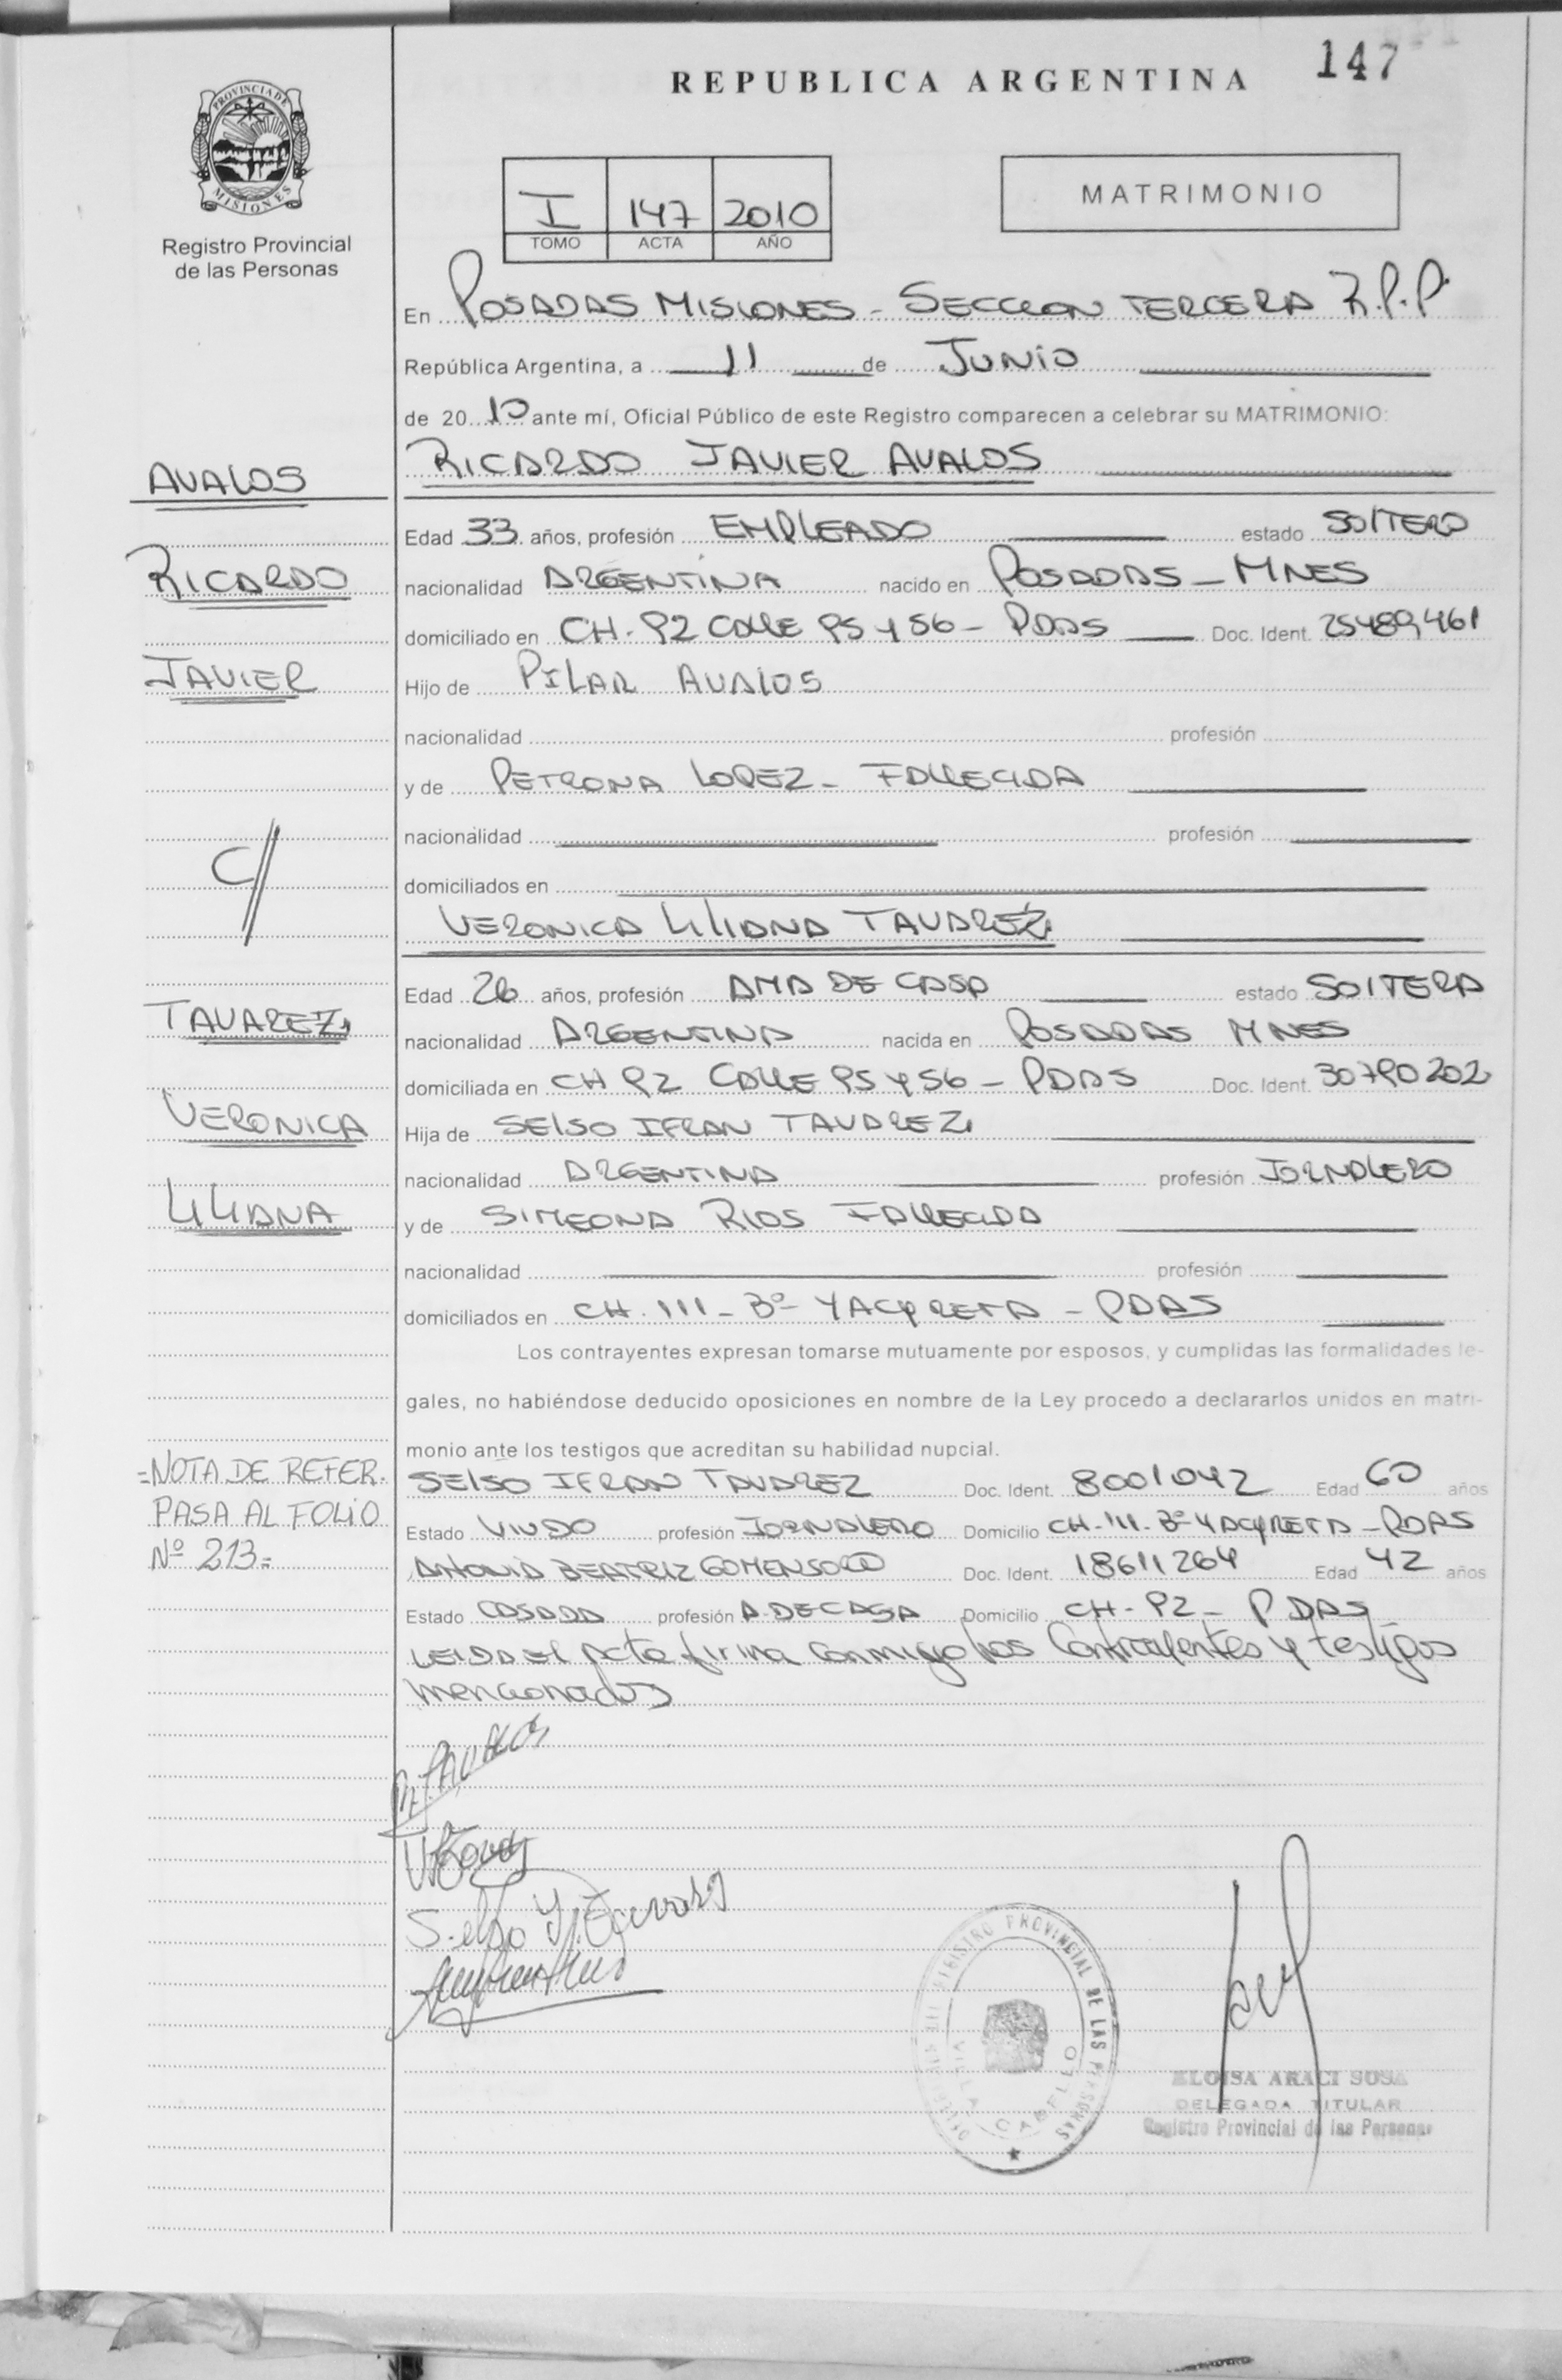 147
REPUBLICA ARGENTINA
PROVINCIA DE
MISIONES
Registro Provincial
de las Personas
I 147 2010
TOMO ACTA AÑO
MATRIMONIO
En POSADAS MISIONES - SECCION TERCERA R.P.P.
República Argentina, a 11 de JUNIO
de 20 10 ante mí, Oficial Público de este Registro comparecen a celebrar su MATRIMONIO:
AVALOS
RICARDO JAVIER AVALOS
Edad 33 años, profesión EMPLEADO estado SOLTERO
RICARDO
nacionalidad ARGENTINA nacido en POSADAS - MNES
domiciliado en CH. 92 CALLE 95 Y 56 - PDAS Doc. Ident. 25489461
JAVIER
Hijo de PILAR AVALOS
nacionalidad profesión
y de PETRONA LOPEZ - FALLECIDA
C/
nacionalidad profesión
domiciliados en
VERONICA LILIANA TAVAREZ
Edad 26 años, profesión AMA DE CASA estado SOLTERA
TAVAREZ
nacionalidad ARGENTINA nacida en POSADAS MNES
domiciliada en CH 92 CALLE 95 Y 56 - PDAS Doc. Ident. 30790202
VERONICA
Hija de SELSO IFRAN TAVAREZ
nacionalidad ARGENTINA profesión JORNALERO
LILIANA
y de SIMEONA RIOS FALLECIDA
nacionalidad profesión
domiciliados en CH. 111 - Bº YACYRETA - PDAS
Los contrayentes expresan tomarse mutuamente por esposos, y cumplidas las formalidades le-
gales, no habiéndose deducido oposiciones en nombre de la Ley procedo a declararlos unidos en matri-
monio ante los testigos que acreditan su habilidad nupcial.
=NOTA DE REFER.
PASA AL FOLIO
Nº 213=
SELSO IFRAN TAVAREZ Doc. Ident. 8001042 Edad 60 años
Estado VIUDO profesión JORNALERO Domicilio CH-111-Bº YACYRETA - PDAS
ANTONIA BEATRIZ GOMENSORO Doc. Ident. 18611264 Edad 42 años
Estado CASADA profesión A. DE CASA Domicilio CH- 92 - PDAS
LEIDA El Acta firma conmigo los Contrayentes y testigos
mencionados
REGISTRO PROVINCIAL DE LAS PERSONAS
VILLA CABELLO
ELOISA ARACI SOSA
DELEGADA TITULAR
Registro Provincial de las Personas